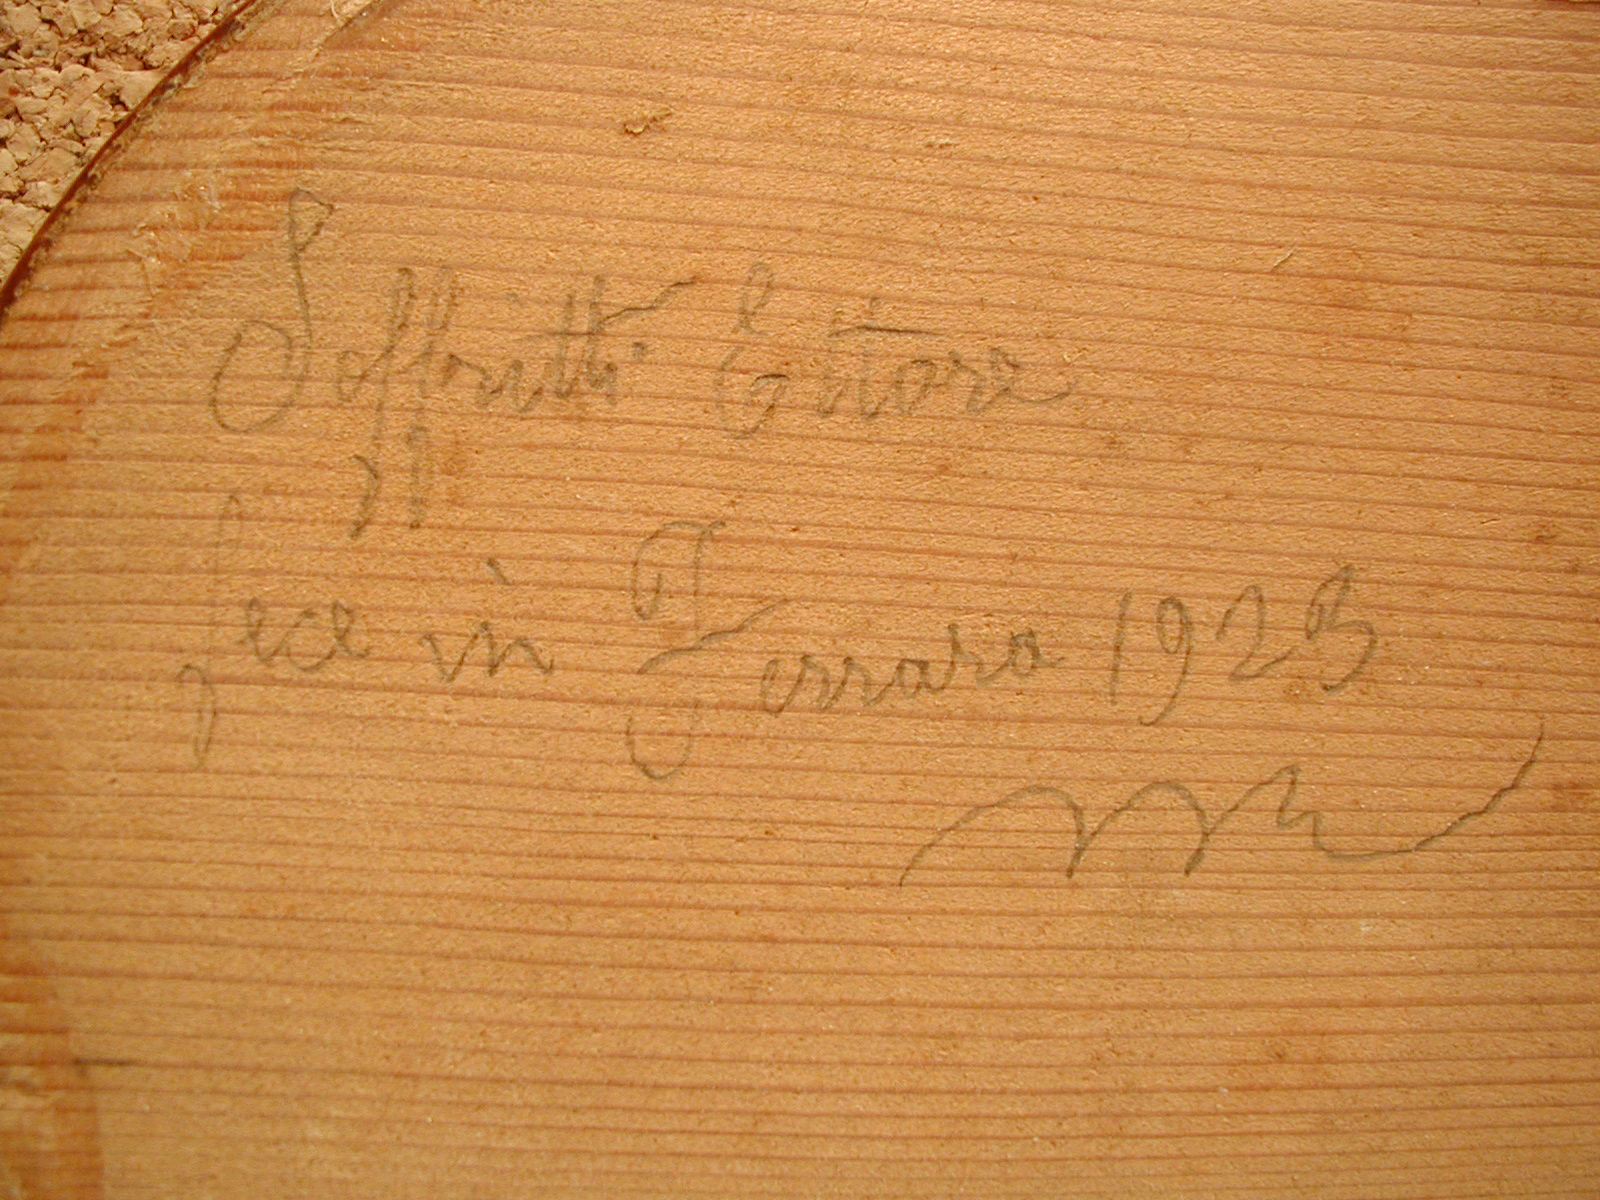 Soffritti Ettore
fece in Ferrara 1923